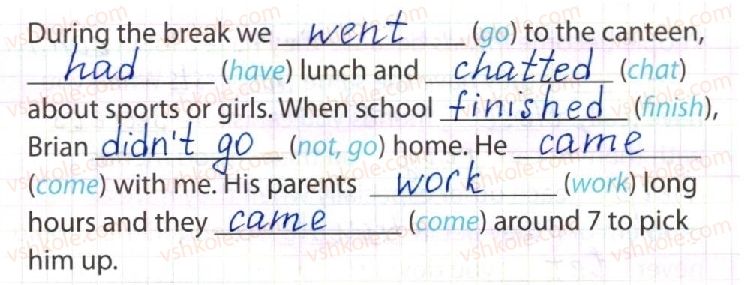 During the break we went (go) to the canteen,
had (have) lunch and chatted (chat)
about sports or girls. When school finished (finish),
Brian didn't go (not, go) home. He came
(come) with me. His parents work (work) long
hours and they came (come) around 7 to pick
him up.